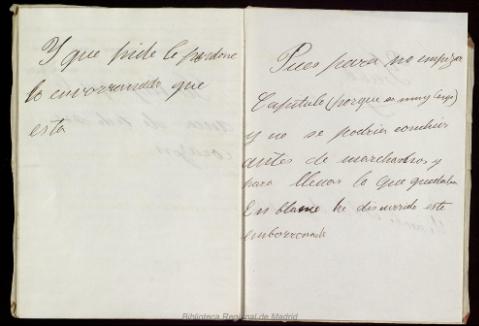 Y que pide le perdone
lo emborronado que
esta
Pues para no empezar
Capítulo (porque es muy largo)
y no se podria concluir
antes de marcharnos y
para llenar lo que quedaba
En blanco he discurrido este
emborronado
Biblioteca Regional de Madrid